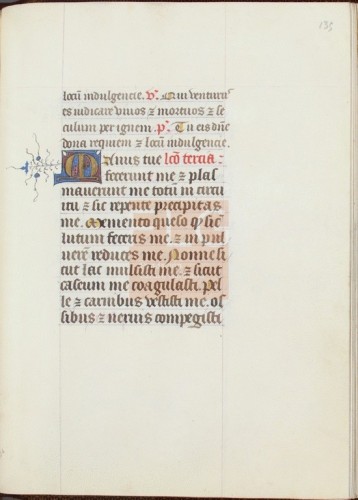 135
locū indulgencie. v͛. Qui venturꝰ
es iudicare viuos ⁊ mortuos ⁊ se
culum per ignem. p͛. Tu eis dñe
dona requiem ⁊ locū indulgencie.
Manus tue lc̄o tercia.
fecerunt me ⁊ plas
mauerunt me totū in circū
itu ⁊ sic repente precipitas
me. Memento queso qͥ sic̄
lutum feceris me. ⁊ in pul
uerē reduces me. Nonne si
cut lac mulsisti me. ⁊ sicut
caseum me coagulasti. Pel
le ⁊ carnibus vestisti me. os
sibus ⁊ neruis compegisti